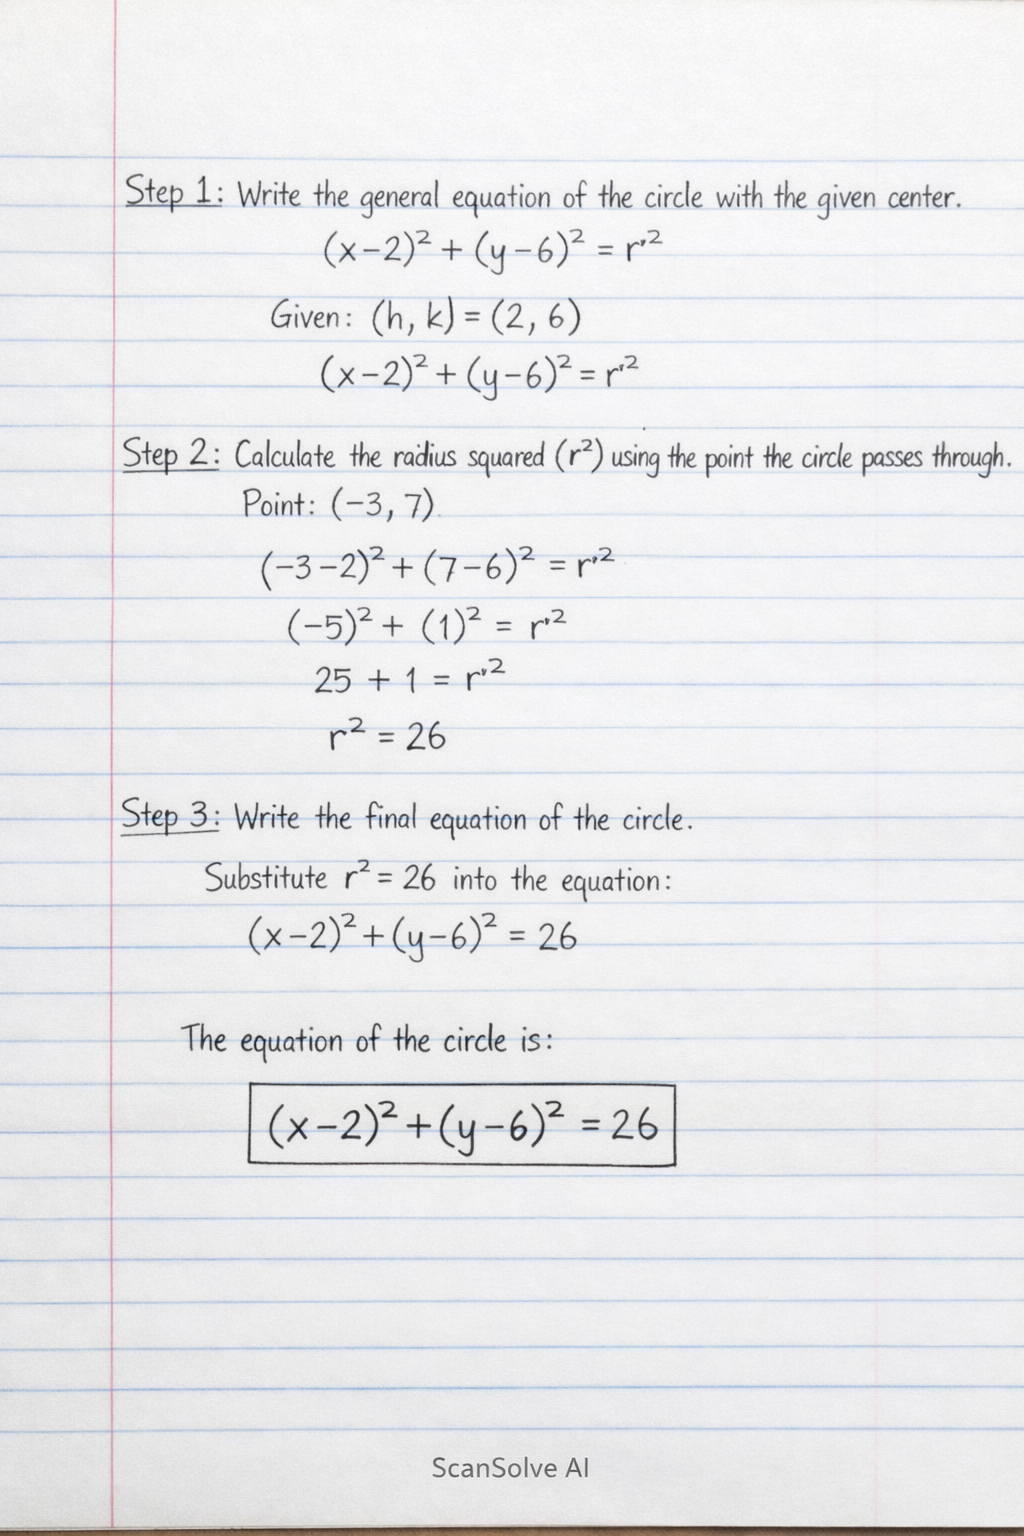 Step 1: Write the general equation of the circle with the given center.
(x-2)² + (y-6)² = r²
Given: (h, k) = (2, 6)
(x-2)² + (y-6)² = r²
Step 2: Calculate the radius squared (r²) using the point the circle passes through.
Point: (-3, 7)
(-3-2)² + (7-6)² = r²
(-5)² + (1)² = r²
25 + 1 = r²
r² = 26
Step 3: Write the final equation of the circle.
Substitute r² = 26 into the equation:
(x-2)² + (y-6)² = 26
The equation of the circle is:
(x-2)² + (y-6)² = 26
ScanSolve AI